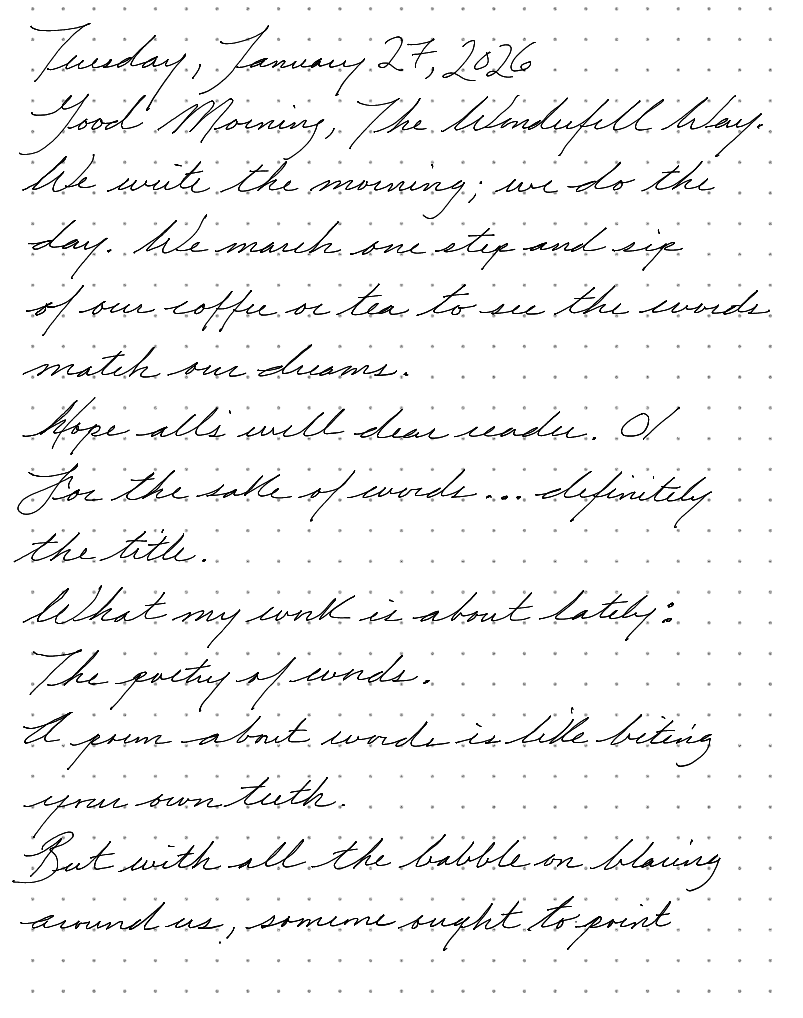 Tuesday, January 27, 2026
Good Morning, The Wonderfull Way.
We write the morning; we do the
day. We march one step and sip
of our coffee or tea to see the words
match our dreams.
Hope all's well dear reader. O/
For the sake of words... definitely
the title.
What my work is about lately:
The poetry of words.
A poem about words is like biting
your own teeth.
But with all the babble on blaring
around us, someone ought to point